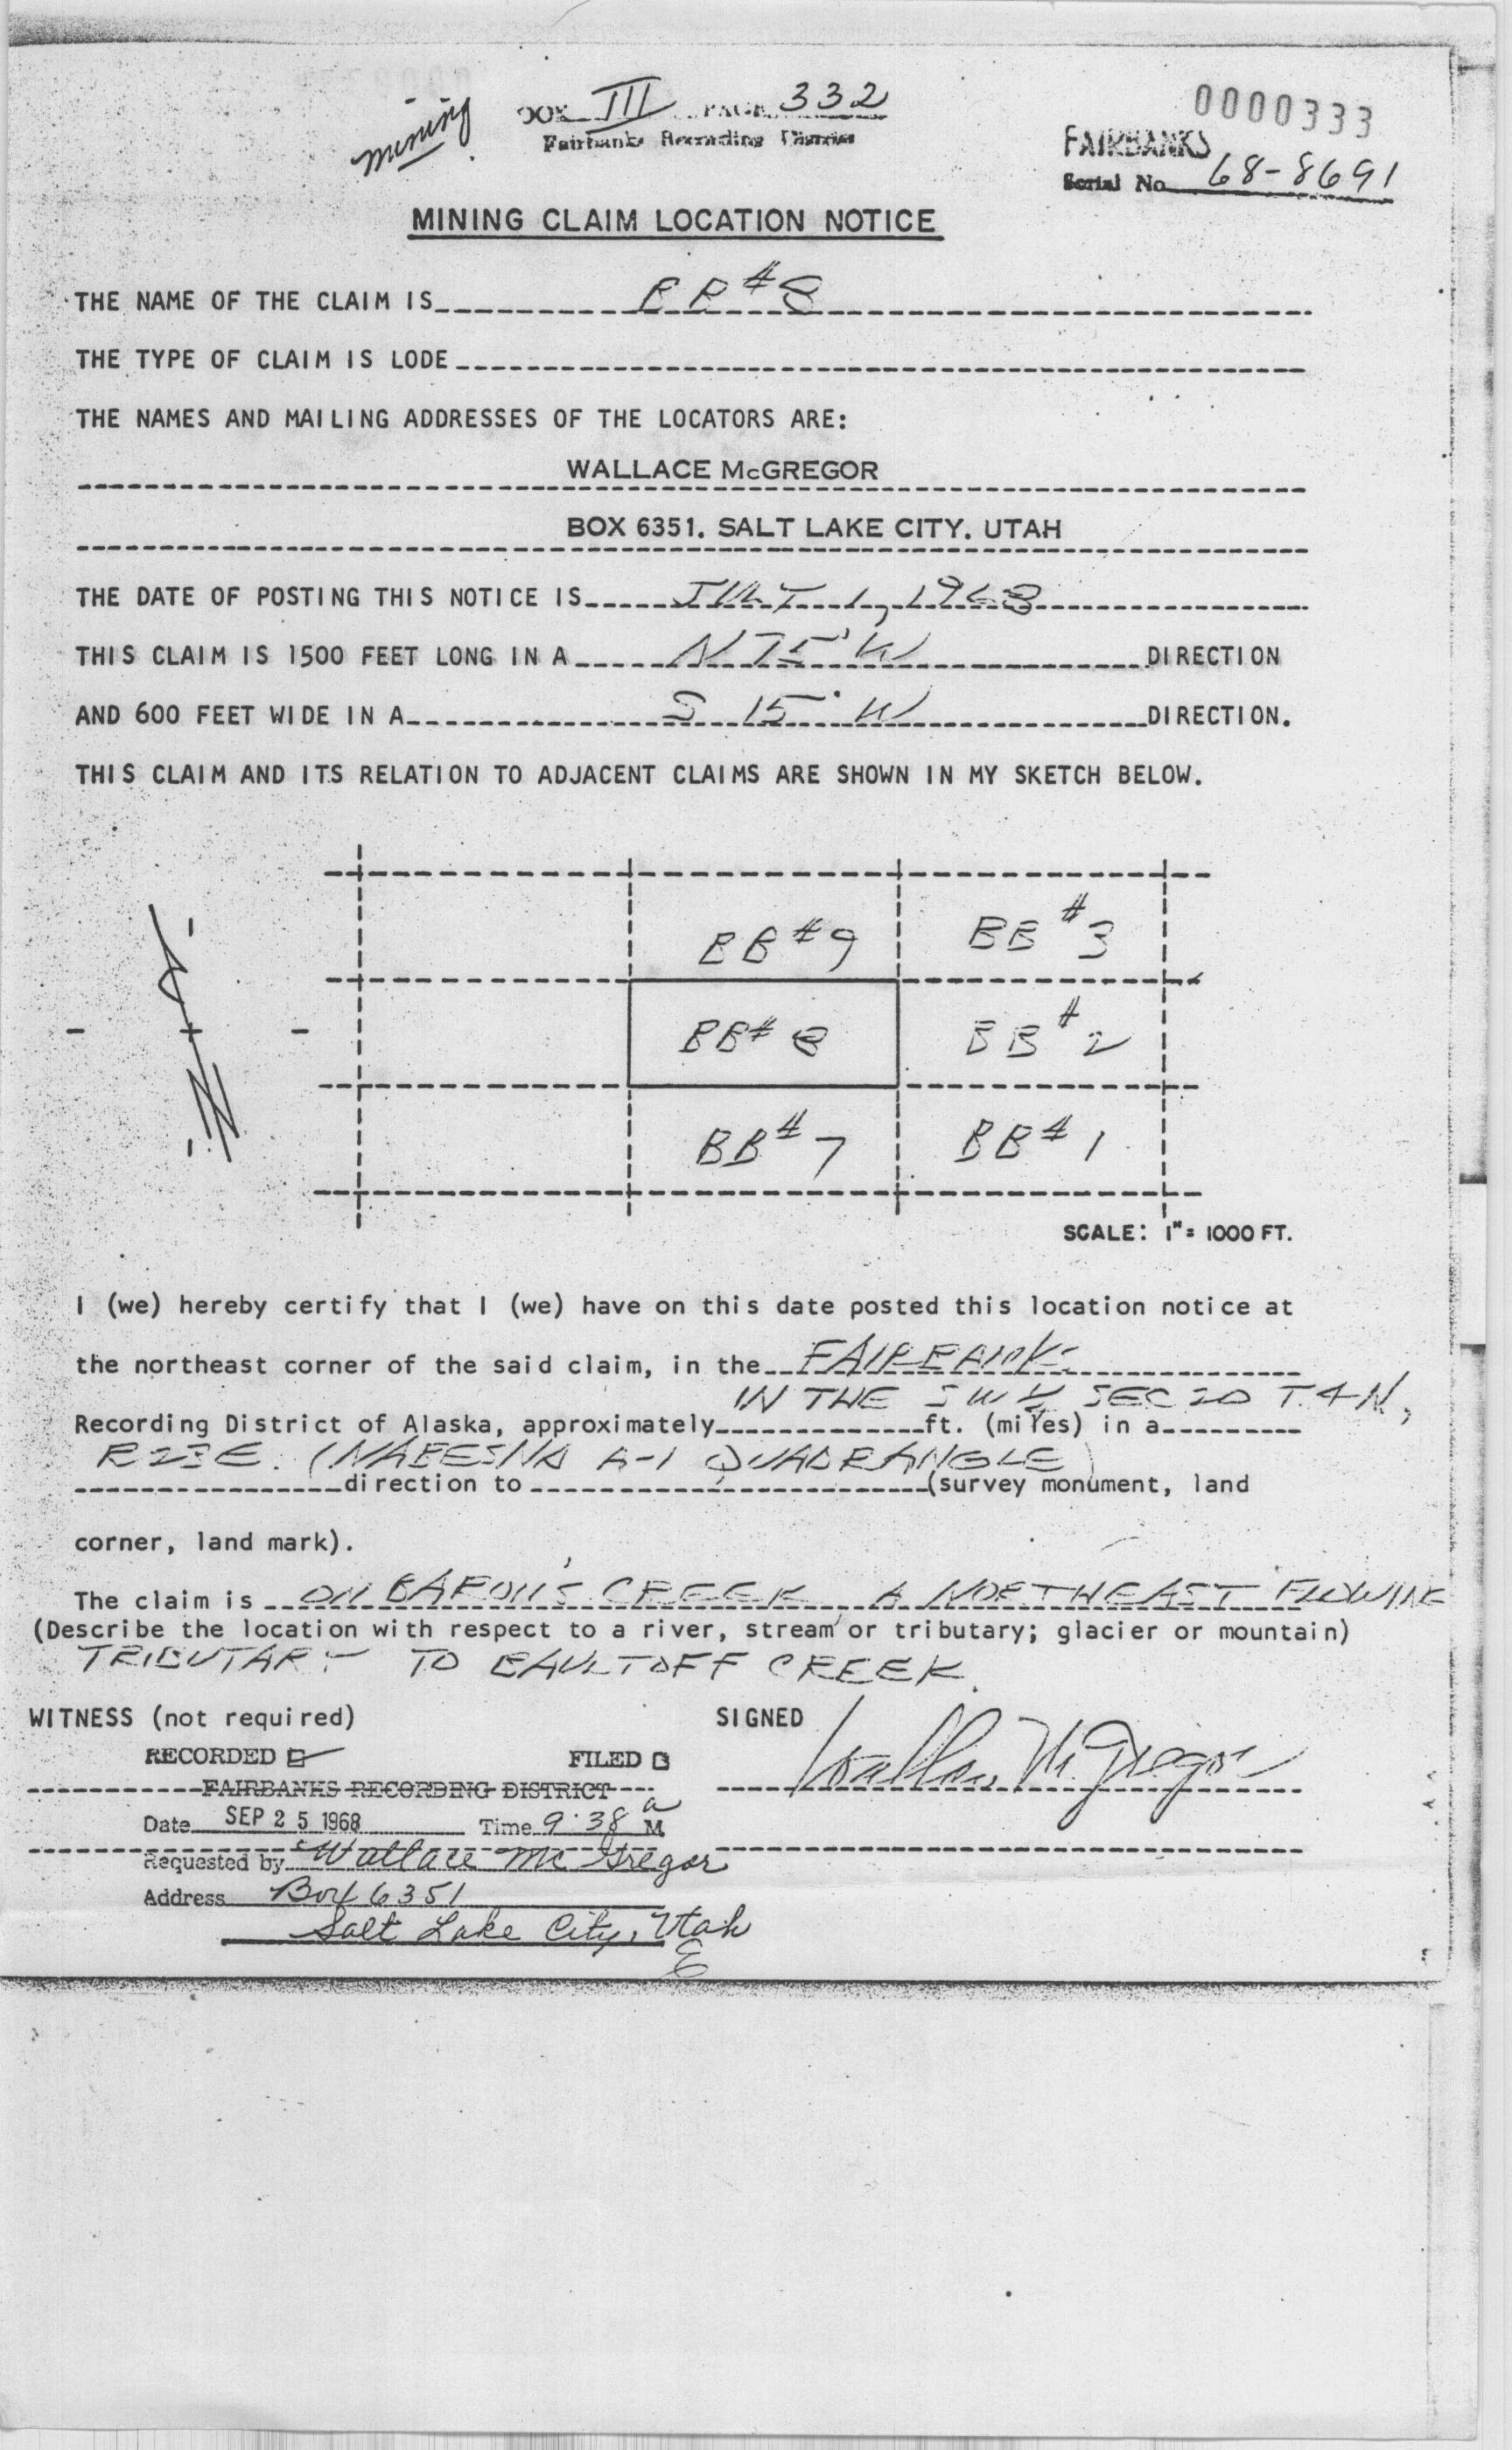 0000333
mining
BOOK III PAGE 332
Fairbanks Recording District
FAIRBANKS
Serial No. 68-8691
MINING CLAIM LOCATION NOTICE
THE NAME OF THE CLAIM IS BB #8
THE TYPE OF CLAIM IS LODE
THE NAMES AND MAILING ADDRESSES OF THE LOCATORS ARE:
WALLACE McGREGOR
BOX 6351, SALT LAKE CITY, UTAH
THE DATE OF POSTING THIS NOTICE IS JULY 1, 1968
THIS CLAIM IS 1500 FEET LONG IN A N 75° W DIRECTION
AND 600 FEET WIDE IN A S 15° W DIRECTION.
THIS CLAIM AND ITS RELATION TO ADJACENT CLAIMS ARE SHOWN IN MY SKETCH BELOW.
BB #9 BB #3
BB# 8 BB #2
BB #7 BB #1
N
SCALE: 1"= 1000 FT.
I (we) hereby certify that I (we) have on this date posted this location notice at
the northeast corner of the said claim, in the FAIRBANKS
IN THE SW ¼ SEC 20 T. 4 N.,
Recording District of Alaska, approximately ft. (miles) in a
R 23 E. (NABESNA A-1 QUADRANGLE)
direction to (survey monument, land
corner, land mark).
The claim is ON BARON'S CREEK, A NORTHEAST FLOWING
(Describe the location with respect to a river, stream or tributary; glacier or mountain)
TRIBUTARY TO BAULTOFF CREEK.
WITNESS (not required) SIGNED
RECORDED FILED Wallace McGregor
FAIRBANKS RECORDING DISTRICT
Date SEP 25 1968 Time 9:38 a M
Requested by Wallace McGregor
Address Box 6351
Salt Lake City, Utah